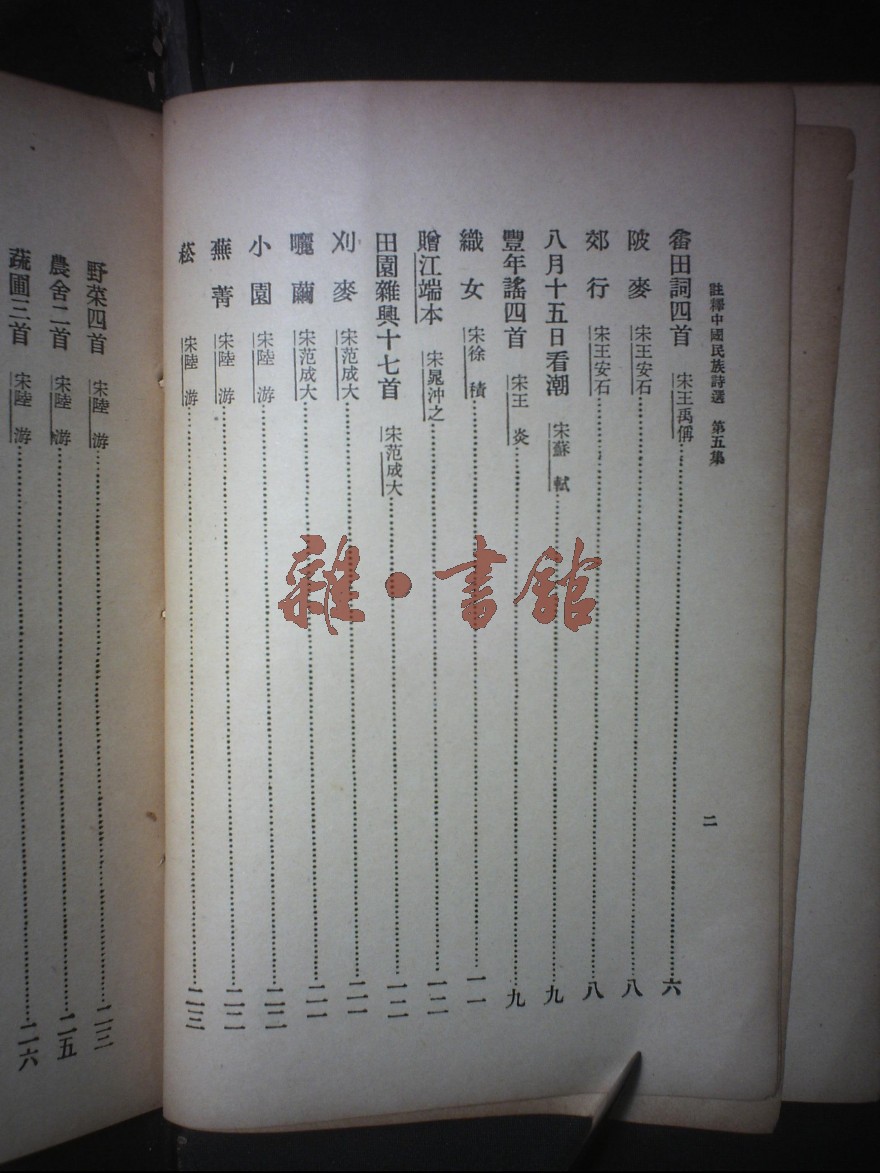 註釋中國民族詩選 第五集
二
畬田詞四首 宋王禹偁 六
陂麥 宋王安石 八
郊行 宋王安石 八
八月十五日看潮 宋蘇軾 九
豐年謠四首 宋王炎 九
織女 宋徐積 一一
贈江端本 宋晁沖之 一二
田園雜興十七首 宋范成大 一二
刈麥 宋范成大 二一
曬繭 宋范成大 二一
小園 宋陸游 二二
蕪菁 宋陸游 二二
菘 宋陸游 二三
野菜四首 宋陸游 二三
農舍二首 宋陸游 二五
蔬圃三首 宋陸游 二六
雜·書館